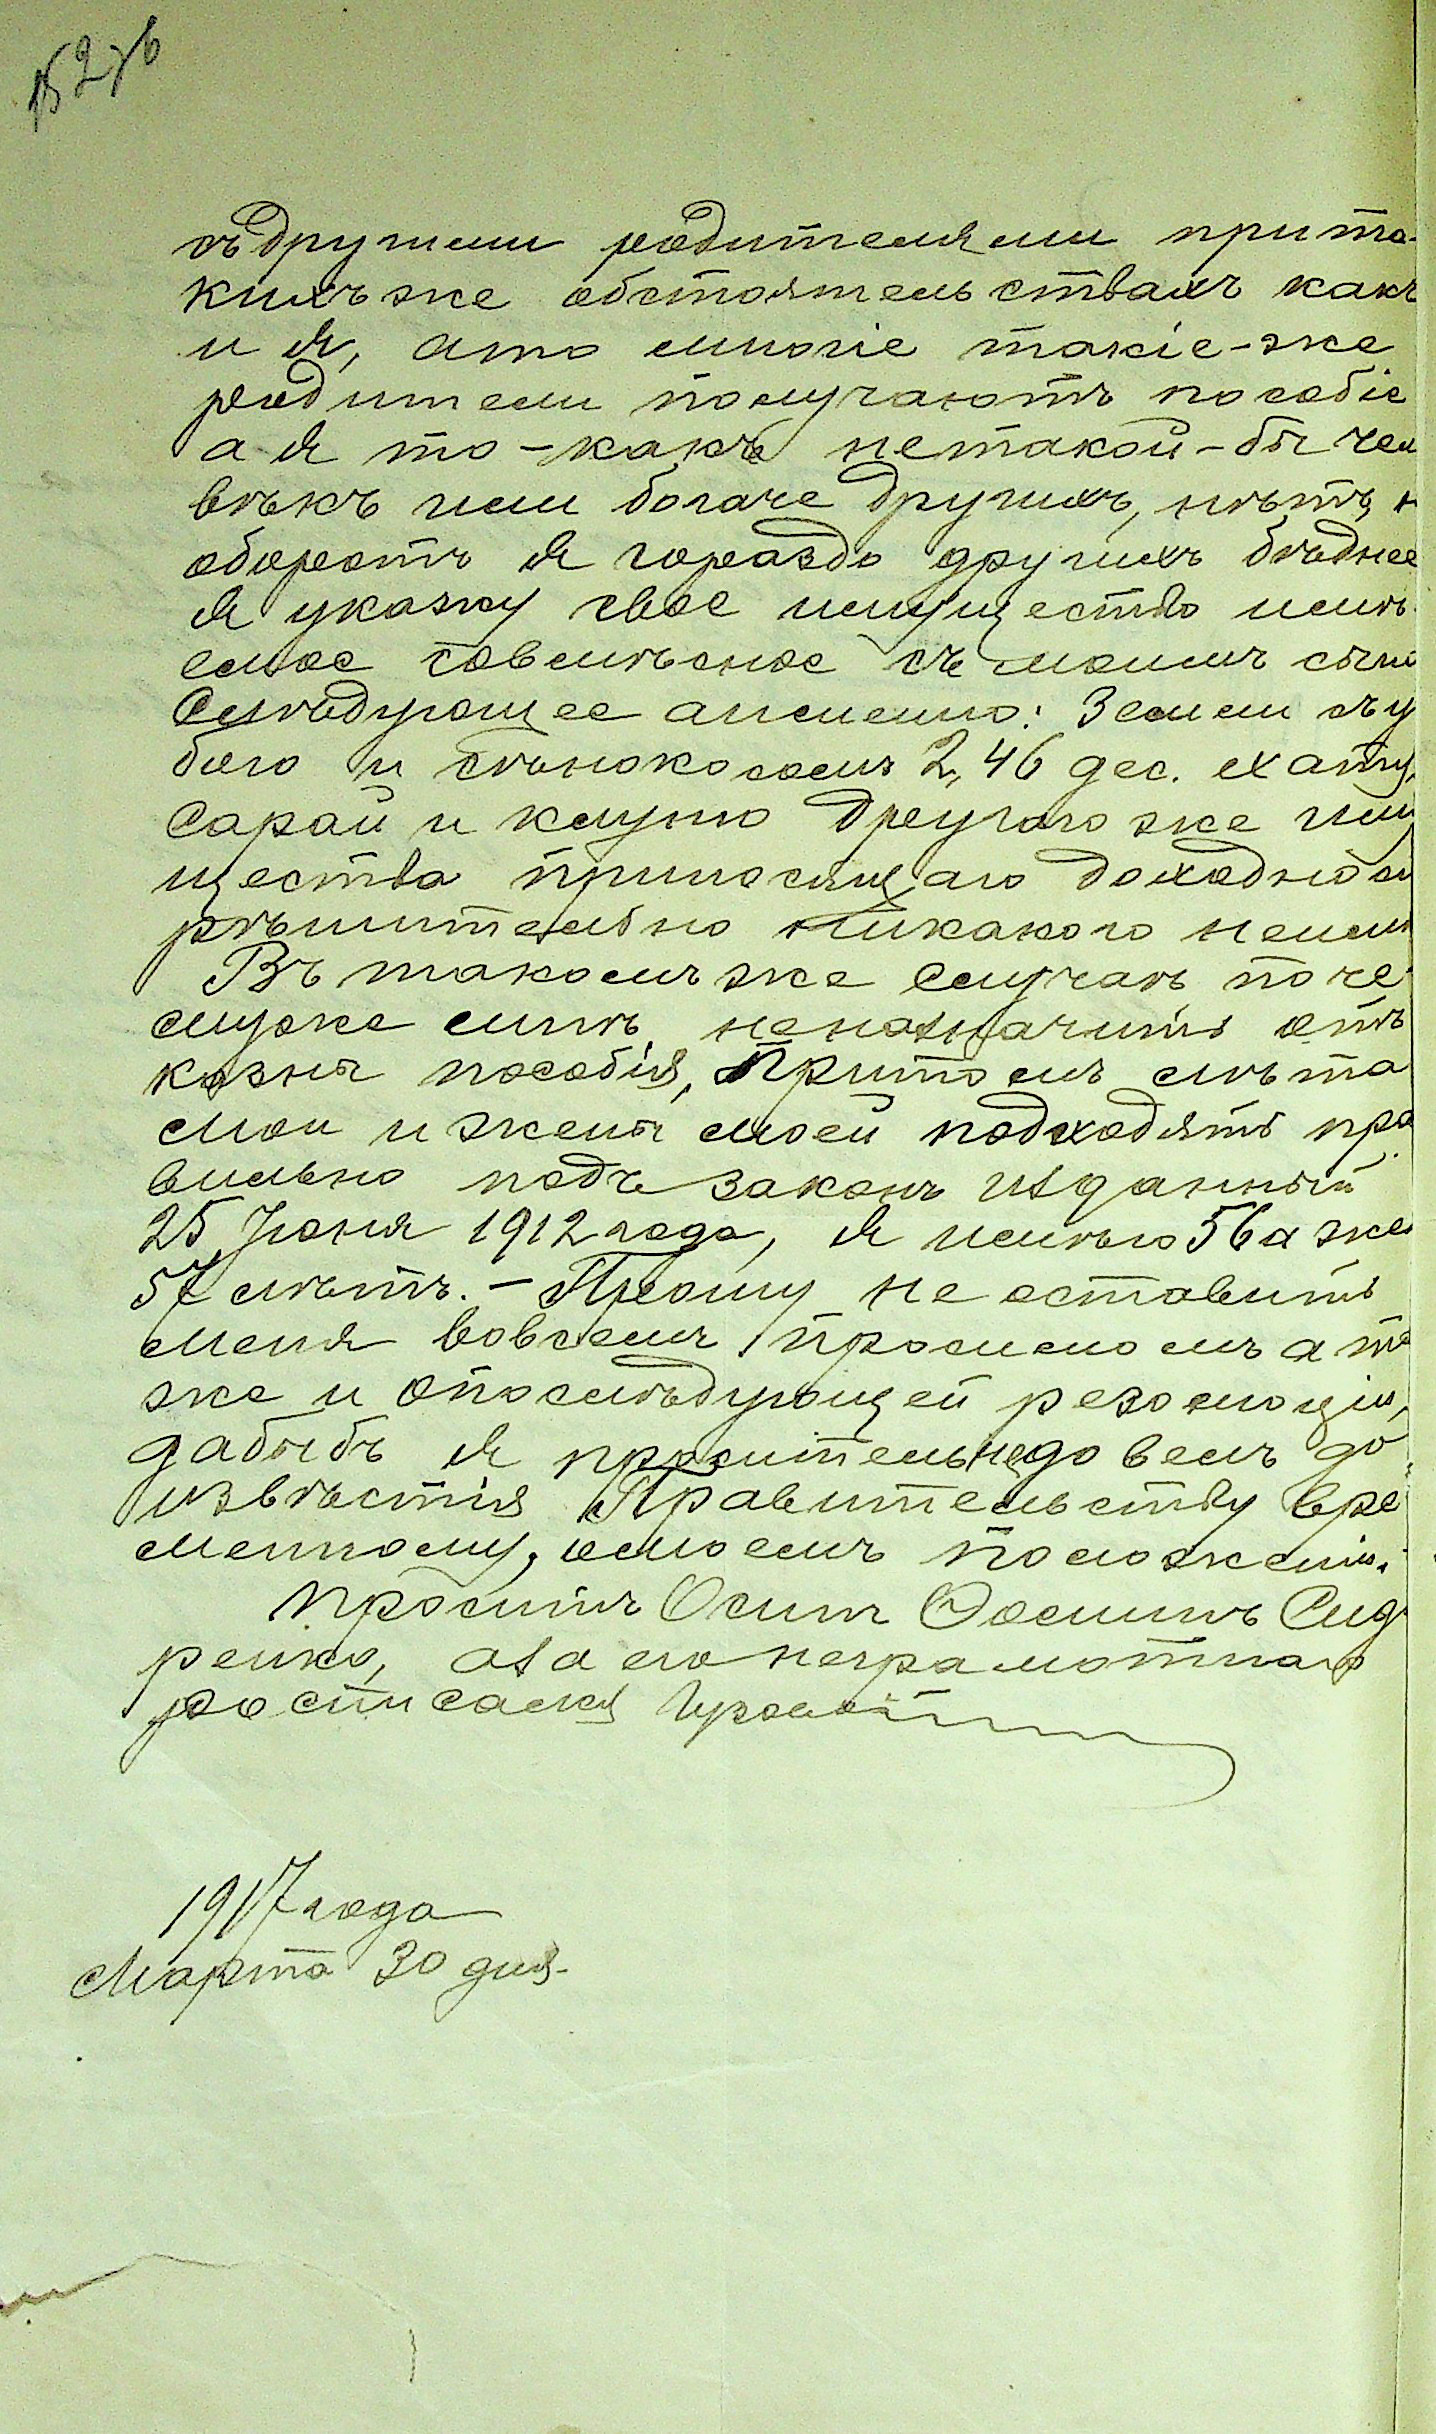 съ другими родителями при та-
кихъ же обстоятельствахъ какъ
и я, а то многіе такіе-же
родители получаютъ пособіе
а я то-какъ не такой-бы чел
вѣкъ или богаче другихъ, нѣтъ, н
оборотъ я гораздо другихъ бѣднее
я укажу свое имущество имѣ
емое совмѣсное съ моимъ сыно
Слѣдующее а именно: Земли съ у
бого и сѣнокосомъ 2,46 дес. хату,
сарай и клуню другого же иму
щества приносящаго доходност
рѣшительно никакого неим
Въ такомъ же случаѣ по че
му же мнѣ неназначить отъ
казны пособія, Притомъ лѣта
мои и жены моей подходятъ пра
вильно подъ законъ изданный
25 Іюня 1912 года, я имѣю 56 а же
57 лѣтъ. – Прошу не оставить
меня вовсемъ просимомъ а та
же и опослѣдующей резолюціи,
дабыбъ я проситель недовелъ до
извѣстія Правительству Вре
менному, омоемъ положеніи.
Проситъ Осипъ Фоминъ Сид
ренко, а за его неграмотнаго
росписался
1917 года
Марта 30 дня